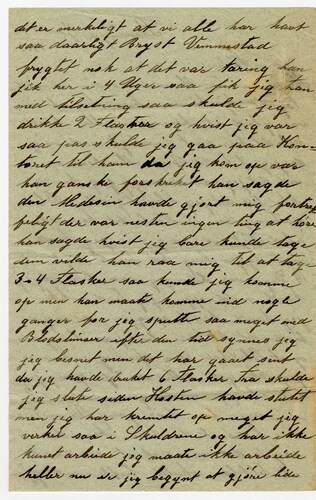 det er merkeligt at vi alle har havt
saa daarligt Bryst Vemmestad
frygtet nok at det var tæring han
gik her i 4 Uger saa fik jeg han
med tilsetning saa skulde jeg
drikke 2 Flasker og hvist jeg var
saa pas skulde jeg gaa paa Kon=
toret til ham da jeg kom op var
han ganske forskreket han sagde
den Medesin havde gjort mig fortref
feligt der var nesten ingen ting at høre
han sagde hvist jeg bare kunde tage
dem vilde han raa mig til at tage
3-4 Flasker saa kunde jeg komme
op men han maate komme ind nogle
ganger for jeg sputte saa meget med
Blodslinser efter den tid synnes jeg
jeg besnet men det har gaaet sent
da jeg havde druket 6 Flasker Fra skulde
jeg slute siden Hosten havde slutet
men jeg har kremtet op meget jeg
verker saa i Skuldrene og har ikke
kunet arbeide jeg maate ikke arbeide
heller nu er jeg begynt at gjøre lide